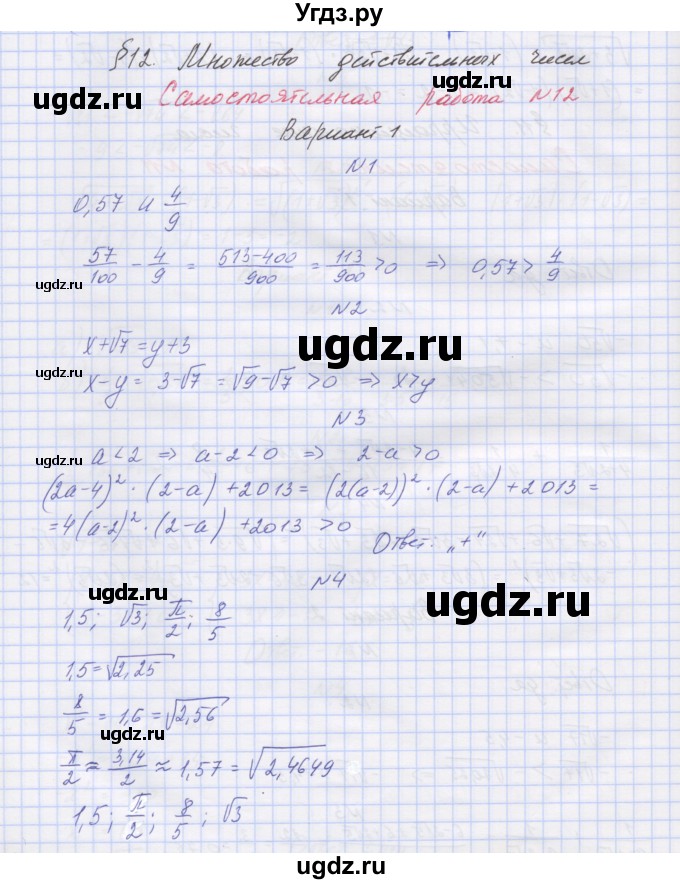 Угдз.ру
§12. Множество действительных чисел
ugdz.ru ugdz.ru
Самостоятельная работа N12
Вариант 1
ugdz.ru
N1
0,57 и 4/9
57/100 - 4/9 = 513-400/900 = 113/900 >0 ⇒ 0,57> 4/9
ugdz.ru
N2
ugdz.ru
x+√7=y+3
ugdz.ru
x-y= 3-√7 =√9-√7 >0 ⇒ x>y
N3
a<2 ⇒ a-2<0 ⇒ 2-a>0
ugdz.ru
(2a-4)²·(2-a)+2013= (2(a-2))²·(2-a)+2013=
=4(a-2)²·(2-a)+2013>0
Ответ: „+“
N4
ugdz.ru ugdz.ru
1,5; √3; π/2; 8/5
1,5=√2,25
ugdz.ru
8/5 = 1,6 =√2,56
ugdz.ru
π/2 ≈ 3,14/2 ≈ 1,57 = √2,4649
1,5; π/2; 8/5; √3
ugdz.ru
ugdz.ru